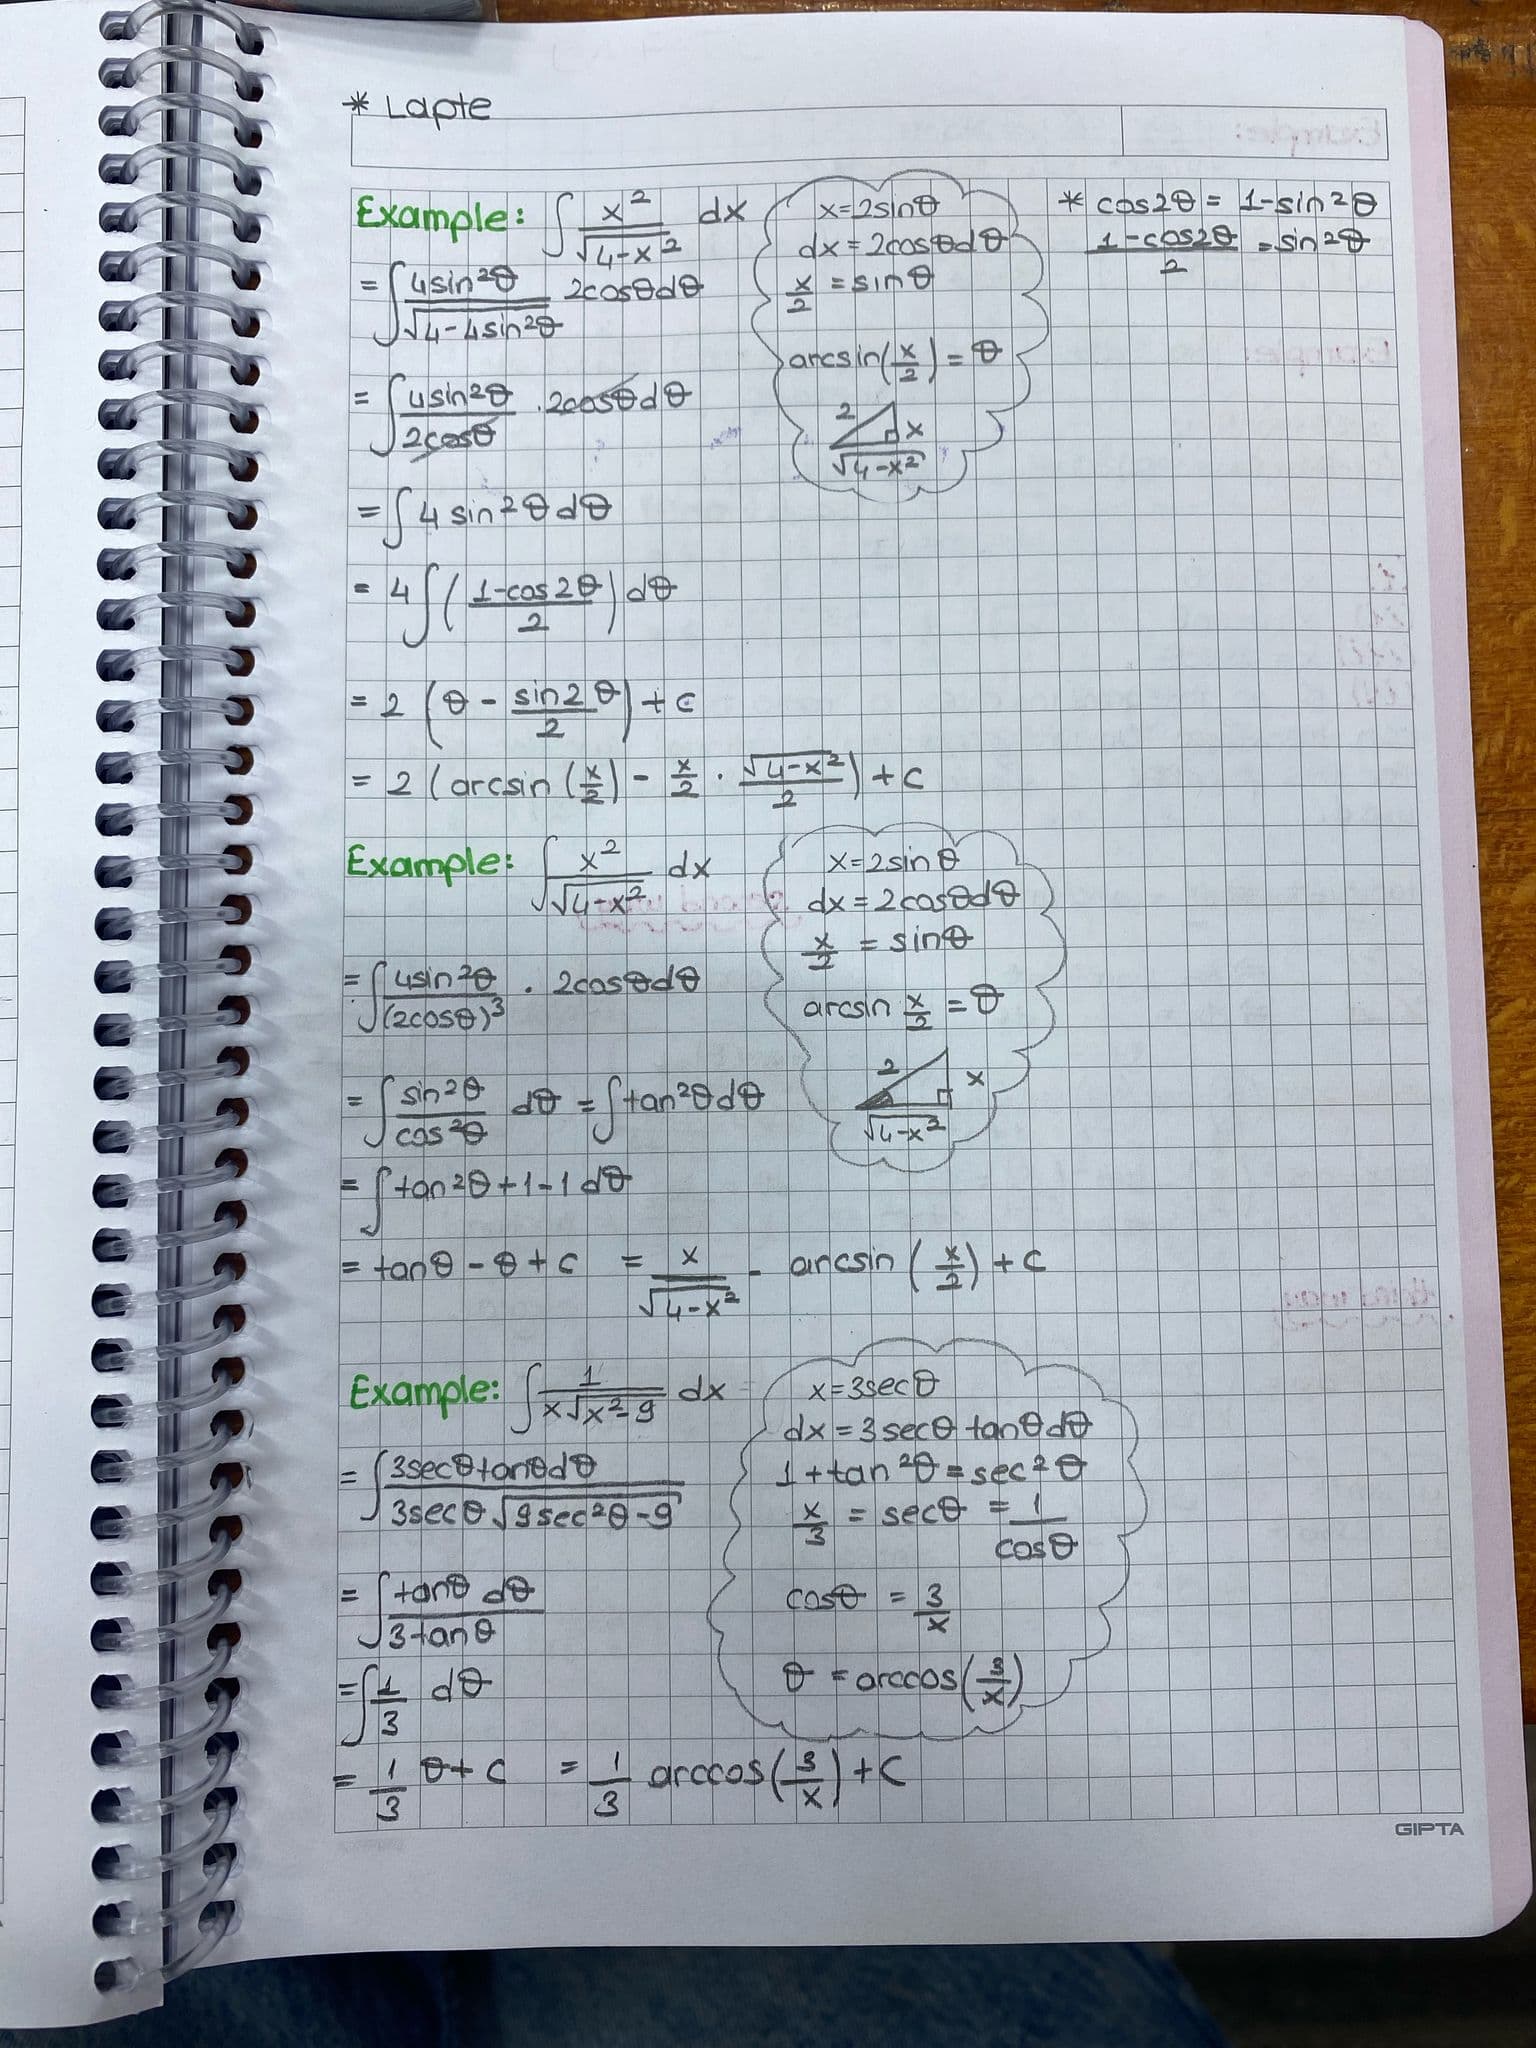 * Lapte
Example: ∫ x²/√(4-x²) dx
= ∫ 4sin²θ/√(4-4sin²θ) 2cosθdθ
= ∫ 4sin²θ/2cosθ . 2cosθdθ
= ∫ 4 sin²θ dθ
= 4∫ ((1-cos2θ)/2) dθ
= 2 (θ - sin2θ/2) + c
= 2 (arcsin (x/2) - x/2 · √(4-x²)/2) + c
x=2sinθ
dx=2cosθdθ
x/2 = sinθ
arcsin(x/2) = θ
2
x
√(4-x²)
* cos2θ = 1-sin2θ
(1-cos2θ)/2 = sin2θ
Example: ∫ x²/√(4-x²) dx
= ∫ 4sin²θ/(2cosθ)³ . 2cosθdθ
= ∫ sin²θ/cos²θ dθ = ∫tan²θdθ
= ∫ tan²θ+1-1 dθ
= tanθ - θ + c = x/√(4-x²) - arcsin (x/2) + c
x=2sinθ
dx=2cosθdθ
x/2 = sinθ
arcsin x/2 = θ
2
x
√(4-x²)
Example: ∫ 1/(x√(x²-9)) dx
= ∫ 3secθtanθdθ/(3secθ √(9sec²θ-9))
= ∫ tanθ dθ/3tanθ
= ∫ 1/3 dθ
= 1/3 θ + c = 1/3 arccos(3/x) + c
x=3secθ
dx=3secθ tanθdθ
1+tan²θ=sec²θ
x/3 = secθ = 1/cosθ
cosθ = 3/x
θ = arccos(3/x)
GIPTA